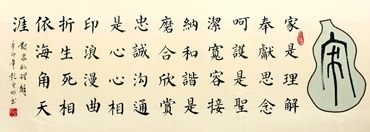 家是理解
奉獻思念
呵護是聖
潔寬容接
納和諧是
磨合欣賞
忠誠溝通
是心心相
印浪漫曲
折生死相
依海角天
涯